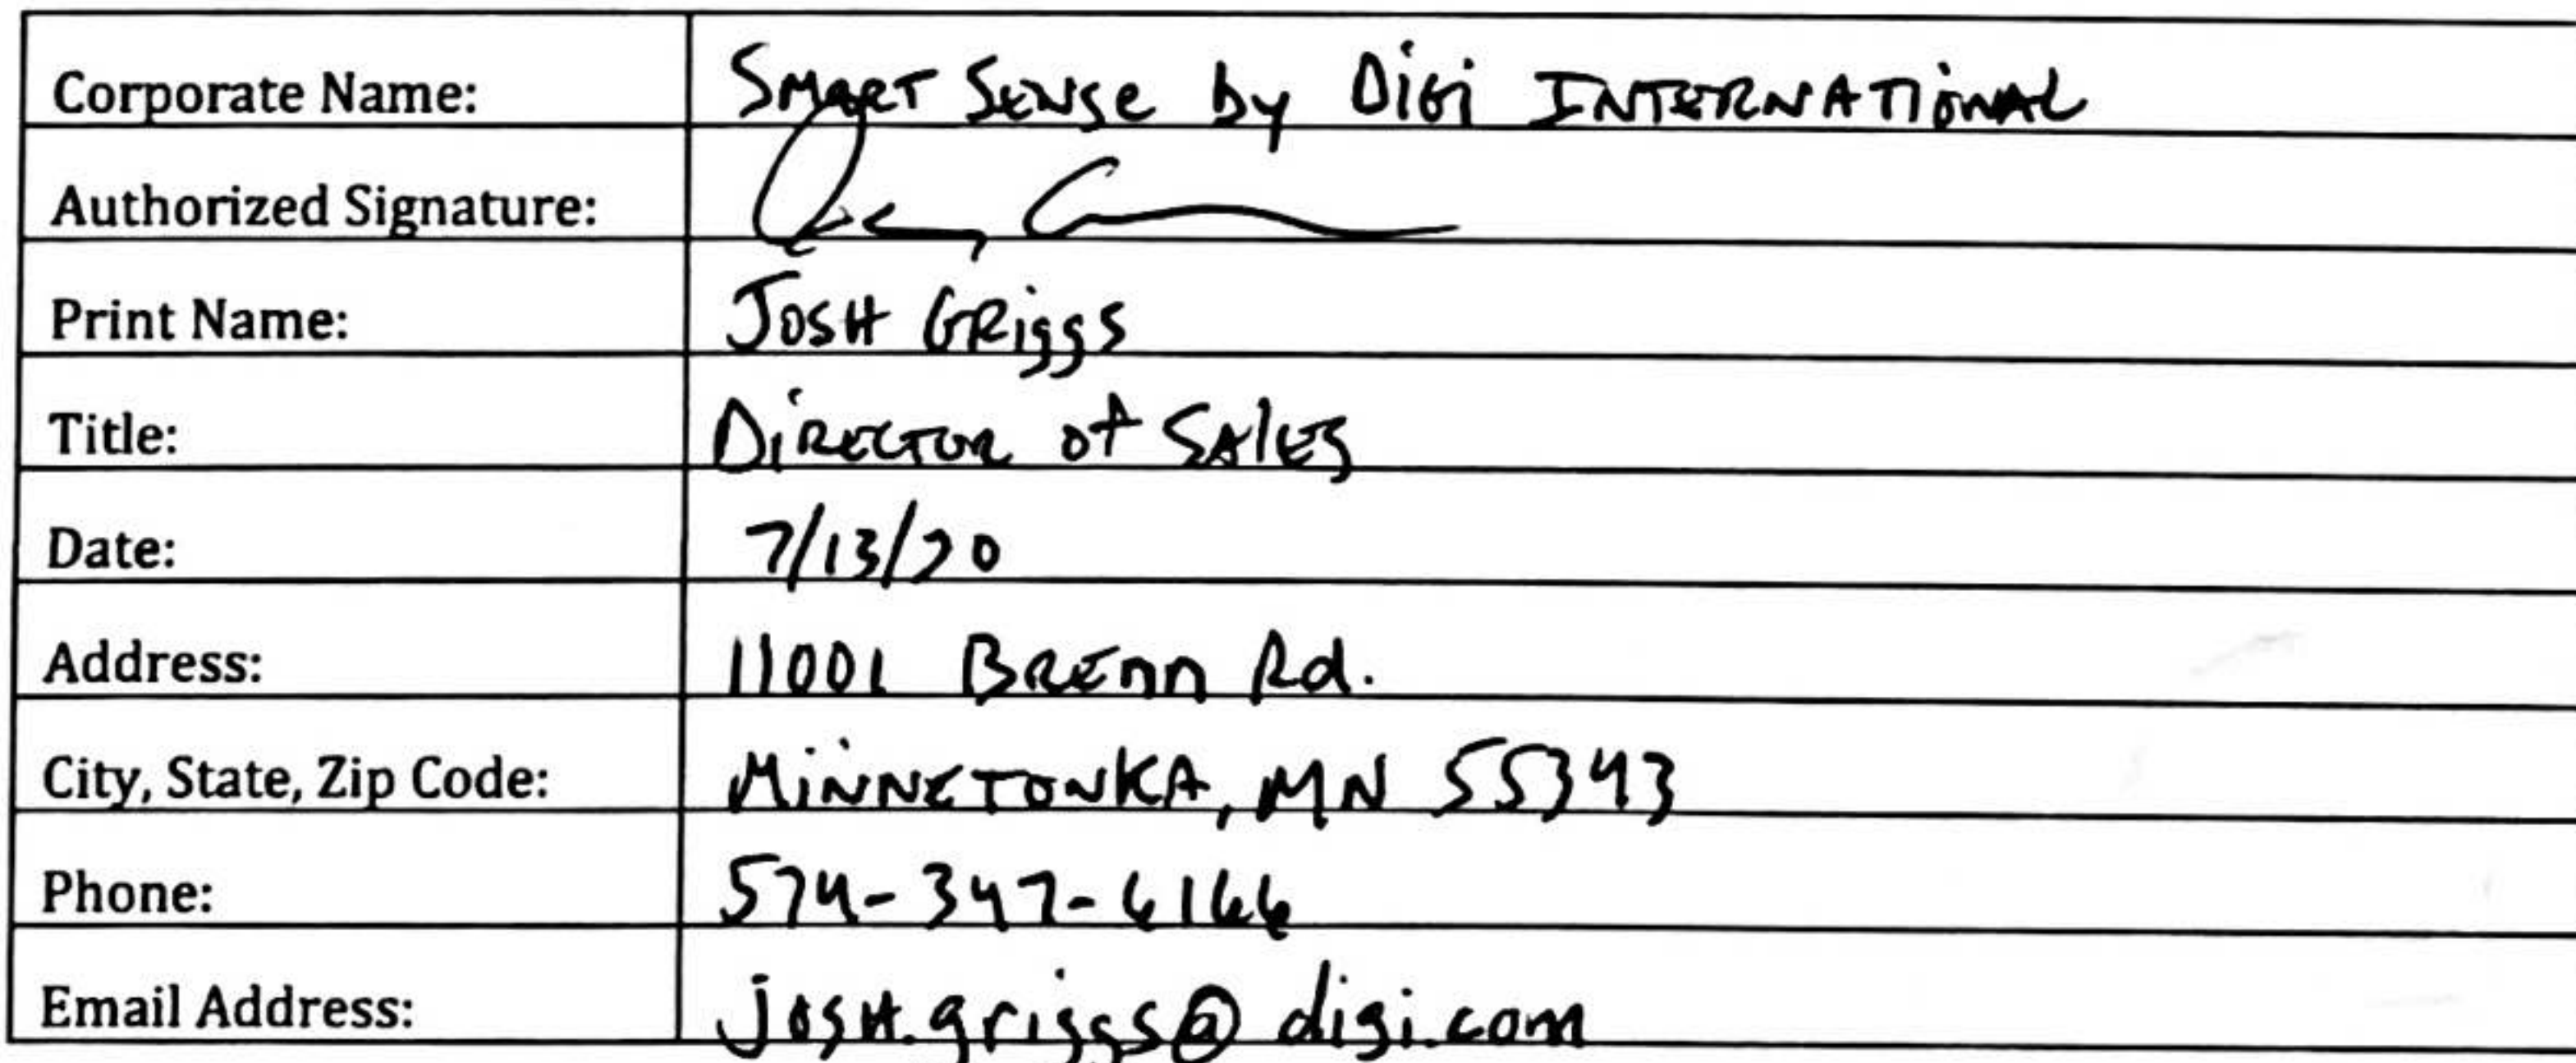 Corporate Name: Smart Sense by Digi International
Authorized Signature:
Print Name: Josh Griggs
Title: Director of Sales
Date: 7/13/20
Address: 11001 Brenn Rd.
City, State, Zip Code: Minnetonka, MN 55343
Phone: 574-347-6166
Email Address: josh.griggs@digi.com